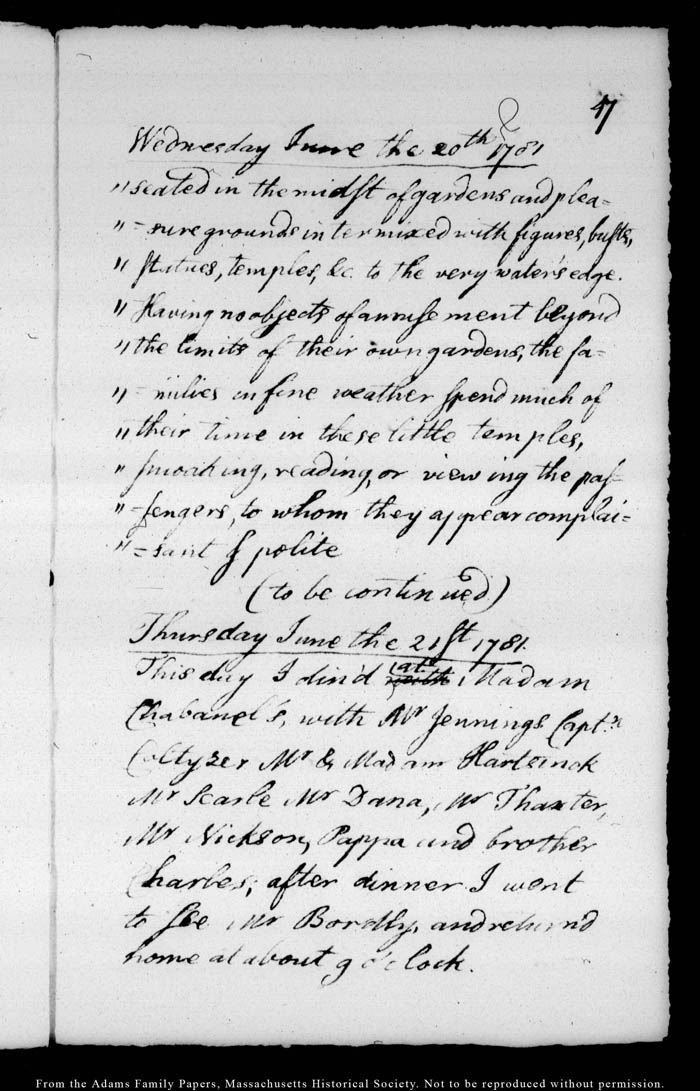 47
Wednesday June the 20th 1781
" seated in the midst of gardens and plea=
" = sure grounds intermixed with figures, busts,
" statues, temples, &c. to the very water's edge.
" Having no objects of amusement beyond
" the limits of their own gardens, the fa=
" = milies in fine weather spend much of
" their time in these little temples,
" smoaking, reading, or viewing the pas=
" = sengers, to whom they appear complai=
" = sant & polite
(to be continued)
Thursday June the 21st 1781.
This day I din'd at Madam
Chabanel's, with Mr Jennings Captn
Coltyzer Mr & Madam Hartsinck
Mr Searle Mr Dana, Mr Thaxter,
Mr Nickson, Pappa and brother
Charles; after dinner I went
to see Mr Bordly, and return'd
home at about 9 o'clock.
From the Adams Family Papers, Massachusetts Historical Society. Not to be reproduced without permission.